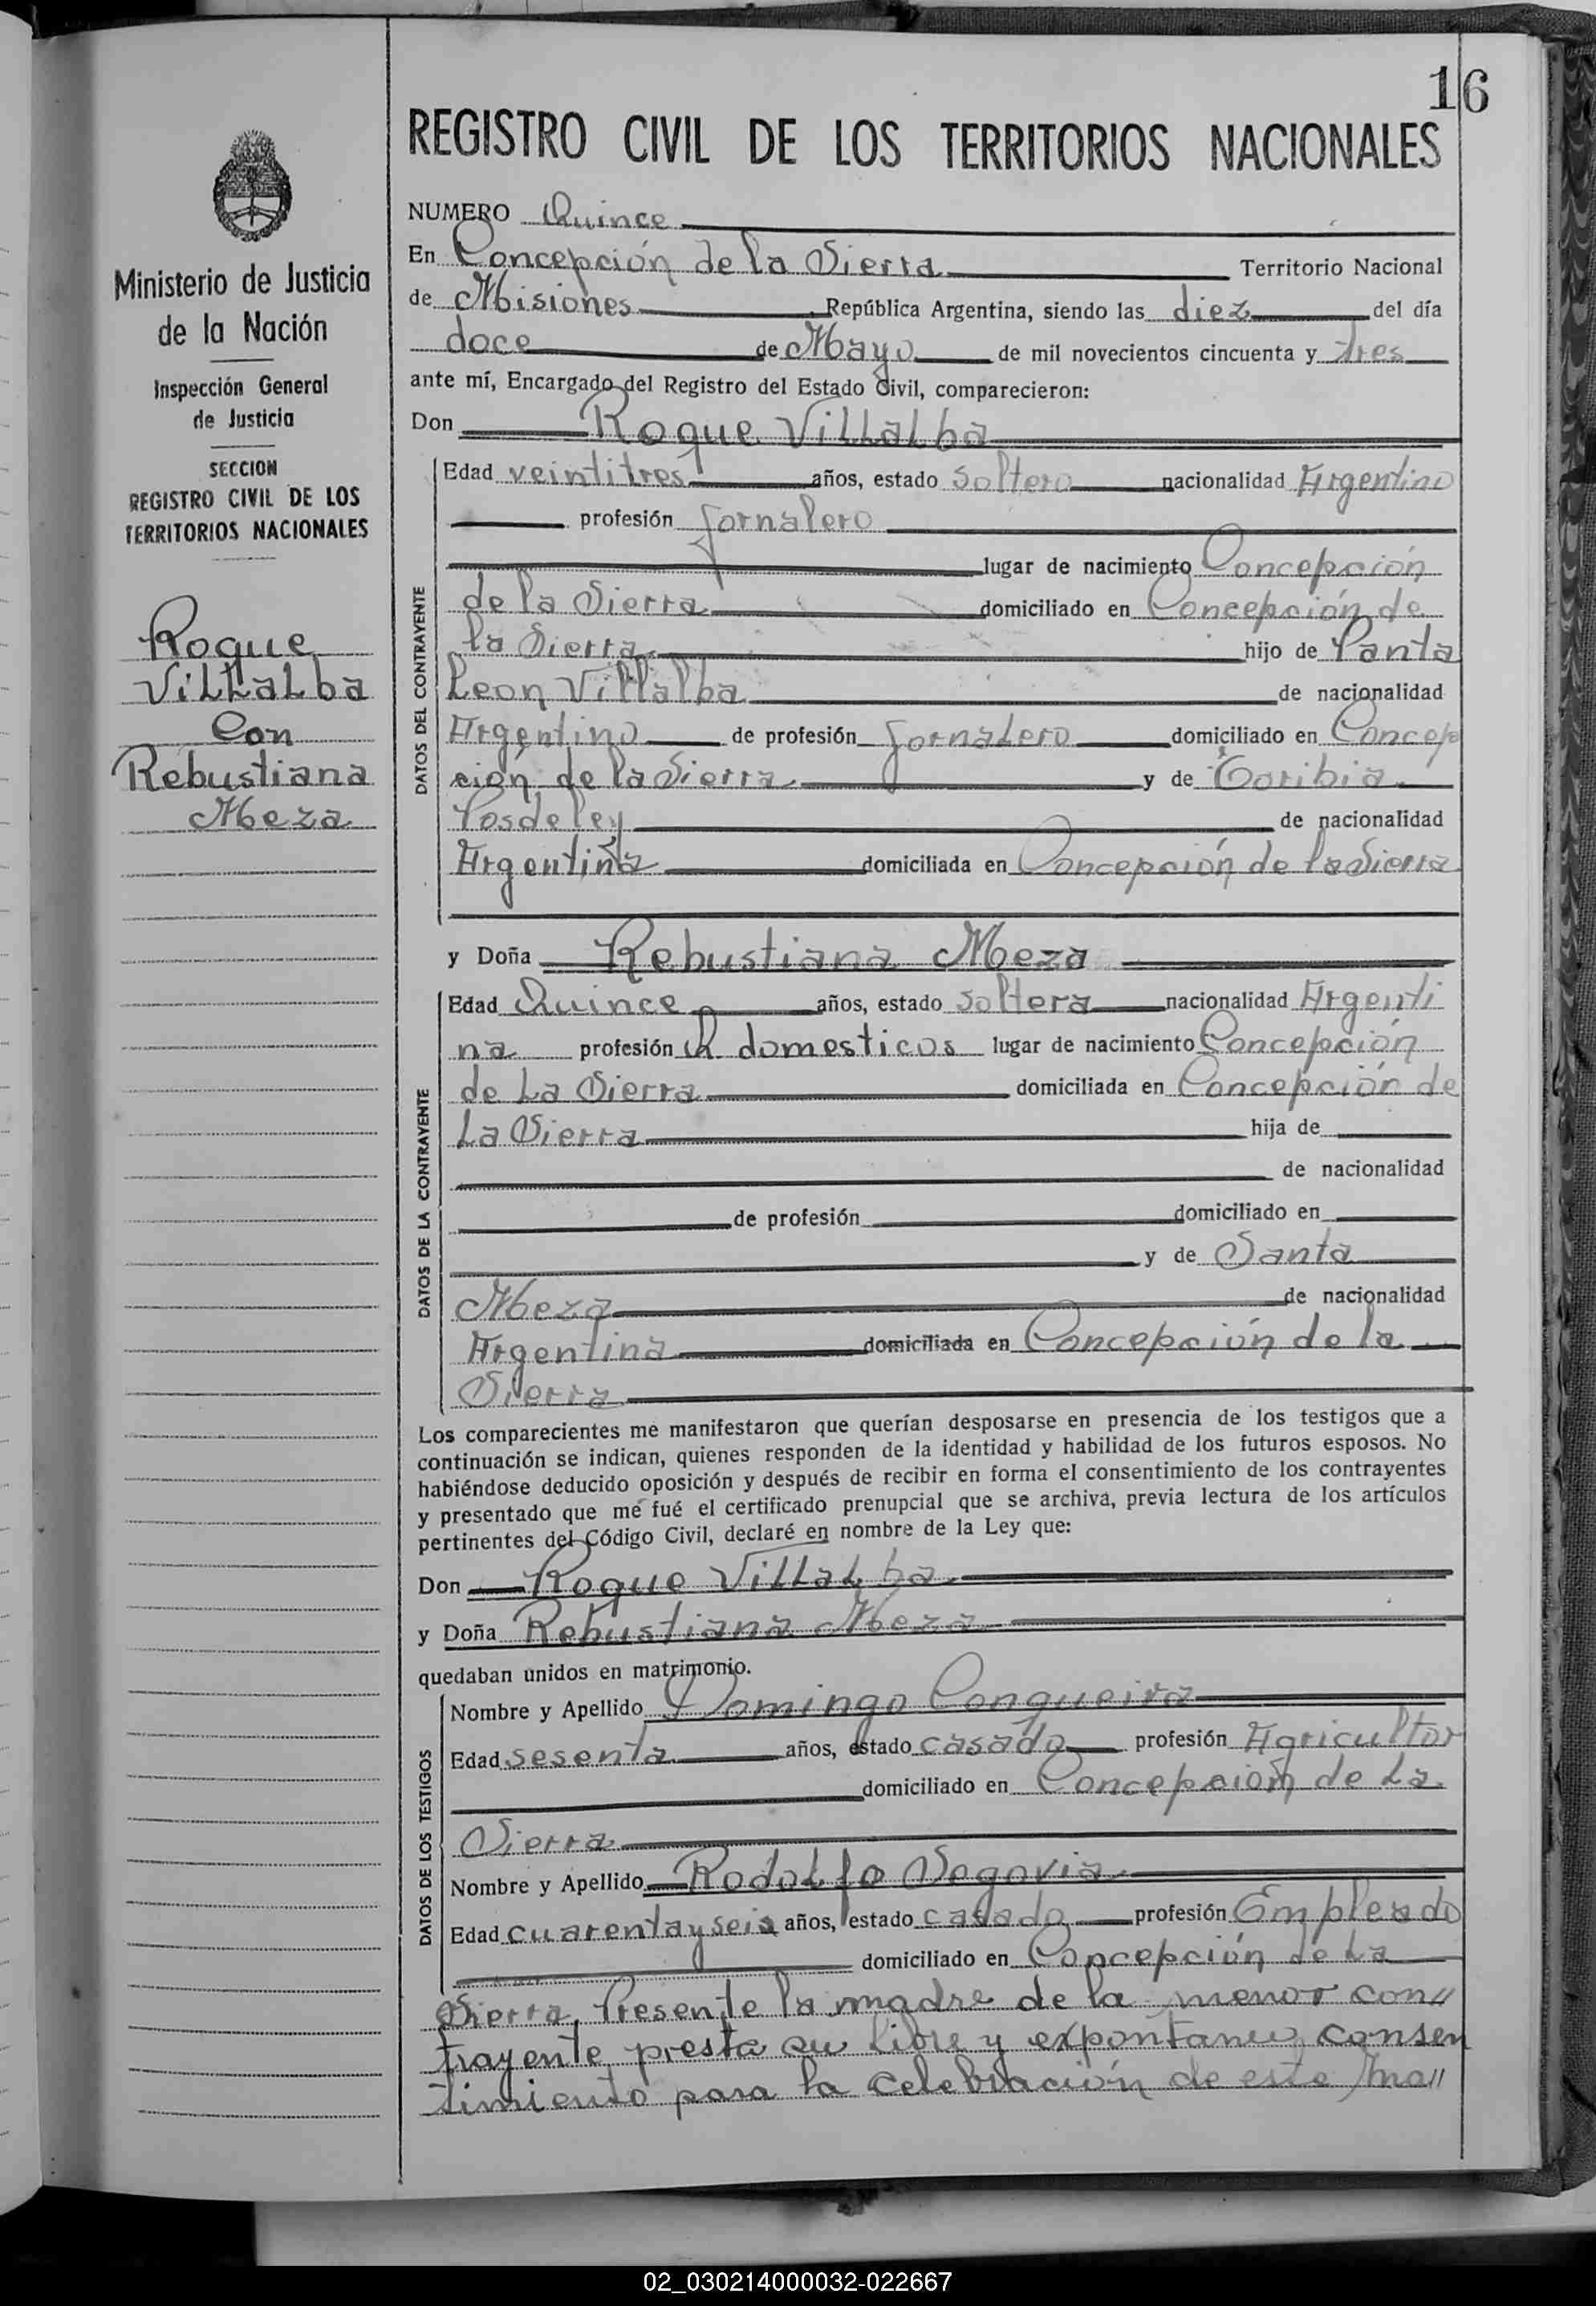 16
REGISTRO CIVIL DE LOS TERRITORIOS NACIONALES
Ministerio de Justicia
de la Nación
Inspección General
de Justicia
SECCION
REGISTRO CIVIL DE LOS
TERRITORIOS NACIONALES
Roque
Villalba
Con
Rebustiana
Meza
NUMERO Quince
En Concepción de la Sierra Territorio Nacional
de Misiones, República Argentina, siendo las diez del día
doce de Mayo de mil novecientos cincuenta y tres
ante mí, Encargado del Registro del Estado Civil, comparecieron:
Don Roque Villalba
DATOS DEL CONTRAYENTE
Edad veintitres años, estado soltero nacionalidad Argentino
profesión Jornalero
lugar de nacimiento Concepción
de la Sierra domiciliado en Concepción de
la Sierra hijo de Panta
Leon Villalba de nacionalidad
Argentino de profesión Jornalero domiciliado en Concep
ción de la Sierra y de Toribia
de nacionalidad
Argentina domiciliada en Concepción de la Sierra
y Doña Rebustiana Meza
DATOS DE LA CONTRAYENTE
Edad Quince años, estado soltera nacionalidad Argenti
na profesión domesticos lugar de nacimiento Concepción
de La Sierra domiciliada en Concepción de
La Sierra hija de
de nacionalidad
de profesión domiciliado en
y de Santa
Meza de nacionalidad
Argentina domiciliada en Concepción de la
Sierra
Los comparecientes me manifestaron que querían desposarse en presencia de los testigos que a
continuación se indican, quienes responden de la identidad y habilidad de los futuros esposos. No
habiéndose deducido oposición y después de recibir en forma el consentimiento de los contrayentes
y presentado que me fué el certificado prenupcial que se archiva, previa lectura de los artículos
pertinentes del Código Civil, declaré en nombre de la Ley que:
Don Roque Villalba
y Doña Rebustiana Meza
quedaban unidos en matrimonio.
DATOS DE LOS TESTIGOS
Nombre y Apellido Domingo Conqueira
Edad sesenta años, estado casado profesión Agricultor
domiciliado en Concepción de La
Sierra
Nombre y Apellido Rodolfo Segovia
Edad cuarenta y seis años, estado casado profesión Empleado
domiciliado en Concepción de La
Sierra, Presente la madre de la menor con//
trayente presta su libre y expontaneo consen
timiento para la celebración de este ma//
02_030214000032-022667